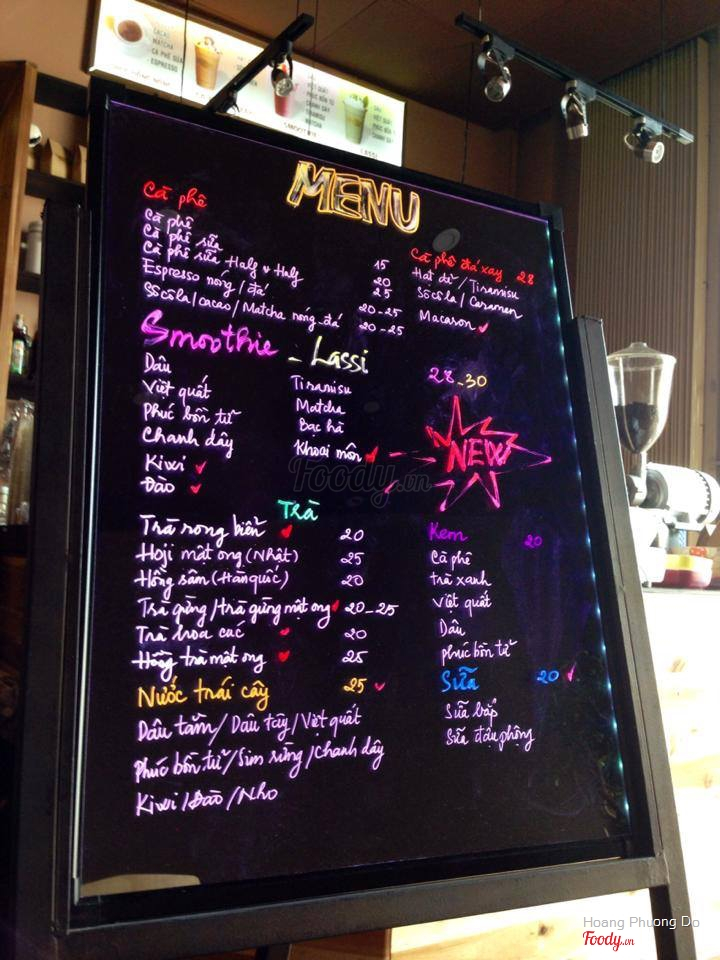 CACAO
MATCHA
CÀ PHÊ SỮA
ESPRESSO
VIỆT QUẤT
PHÚC BỒN TỬ
CHANH DÂY
TIRAMISU
MATCHA
SMOOTHIE
DÂU
VIỆT QUẤT
PHÚC BỒN TỬ
CHANH DÂY
LASSI
MENU
Cà phê
Cà phê
Cà phê sữa 15
Cà phê sữa Half & Half 20
Espresso nóng/đá 25
Sôcôla/cacao/Matcha nóng-đá 20-25
20-25
Cà phê đá xay 28
Hạt dẻ/Tiramisu
Sôcôla/Caramen
Macaron ✓
Smoothie - Lassi
28-30
Dâu
Việt quất
Phúc bồn tử
Chanh dây
Kiwi ✓
Đào ✓
Tiramisu
Matcha
Bạc hà
Khoai môn ✓
NEW
Foody.vn
Trà
Trà rong biển ✓ 20
Hoji mật ong (Nhật) 25
Hồng sâm (Hàn quốc) 20
Trà gừng/trà gừng mật ong ✓ 20-25
Trà hoa cúc ✓ 20
Hồng trà mật ong ✓ 25
Nước trái cây 25 ✓
Dâu tằm/Dâu tây/Việt quất
Phúc bồn tử/Sim rừng/Chanh dây
Kiwi/Đào/Nho
Kem 20
Cà phê
trà xanh
Việt quất
Dâu
phúc bồn tử
Sữa 20 ✓
Sữa bắp
Sữa đậu phộng
Hoang Phuong Do
Foody.vn